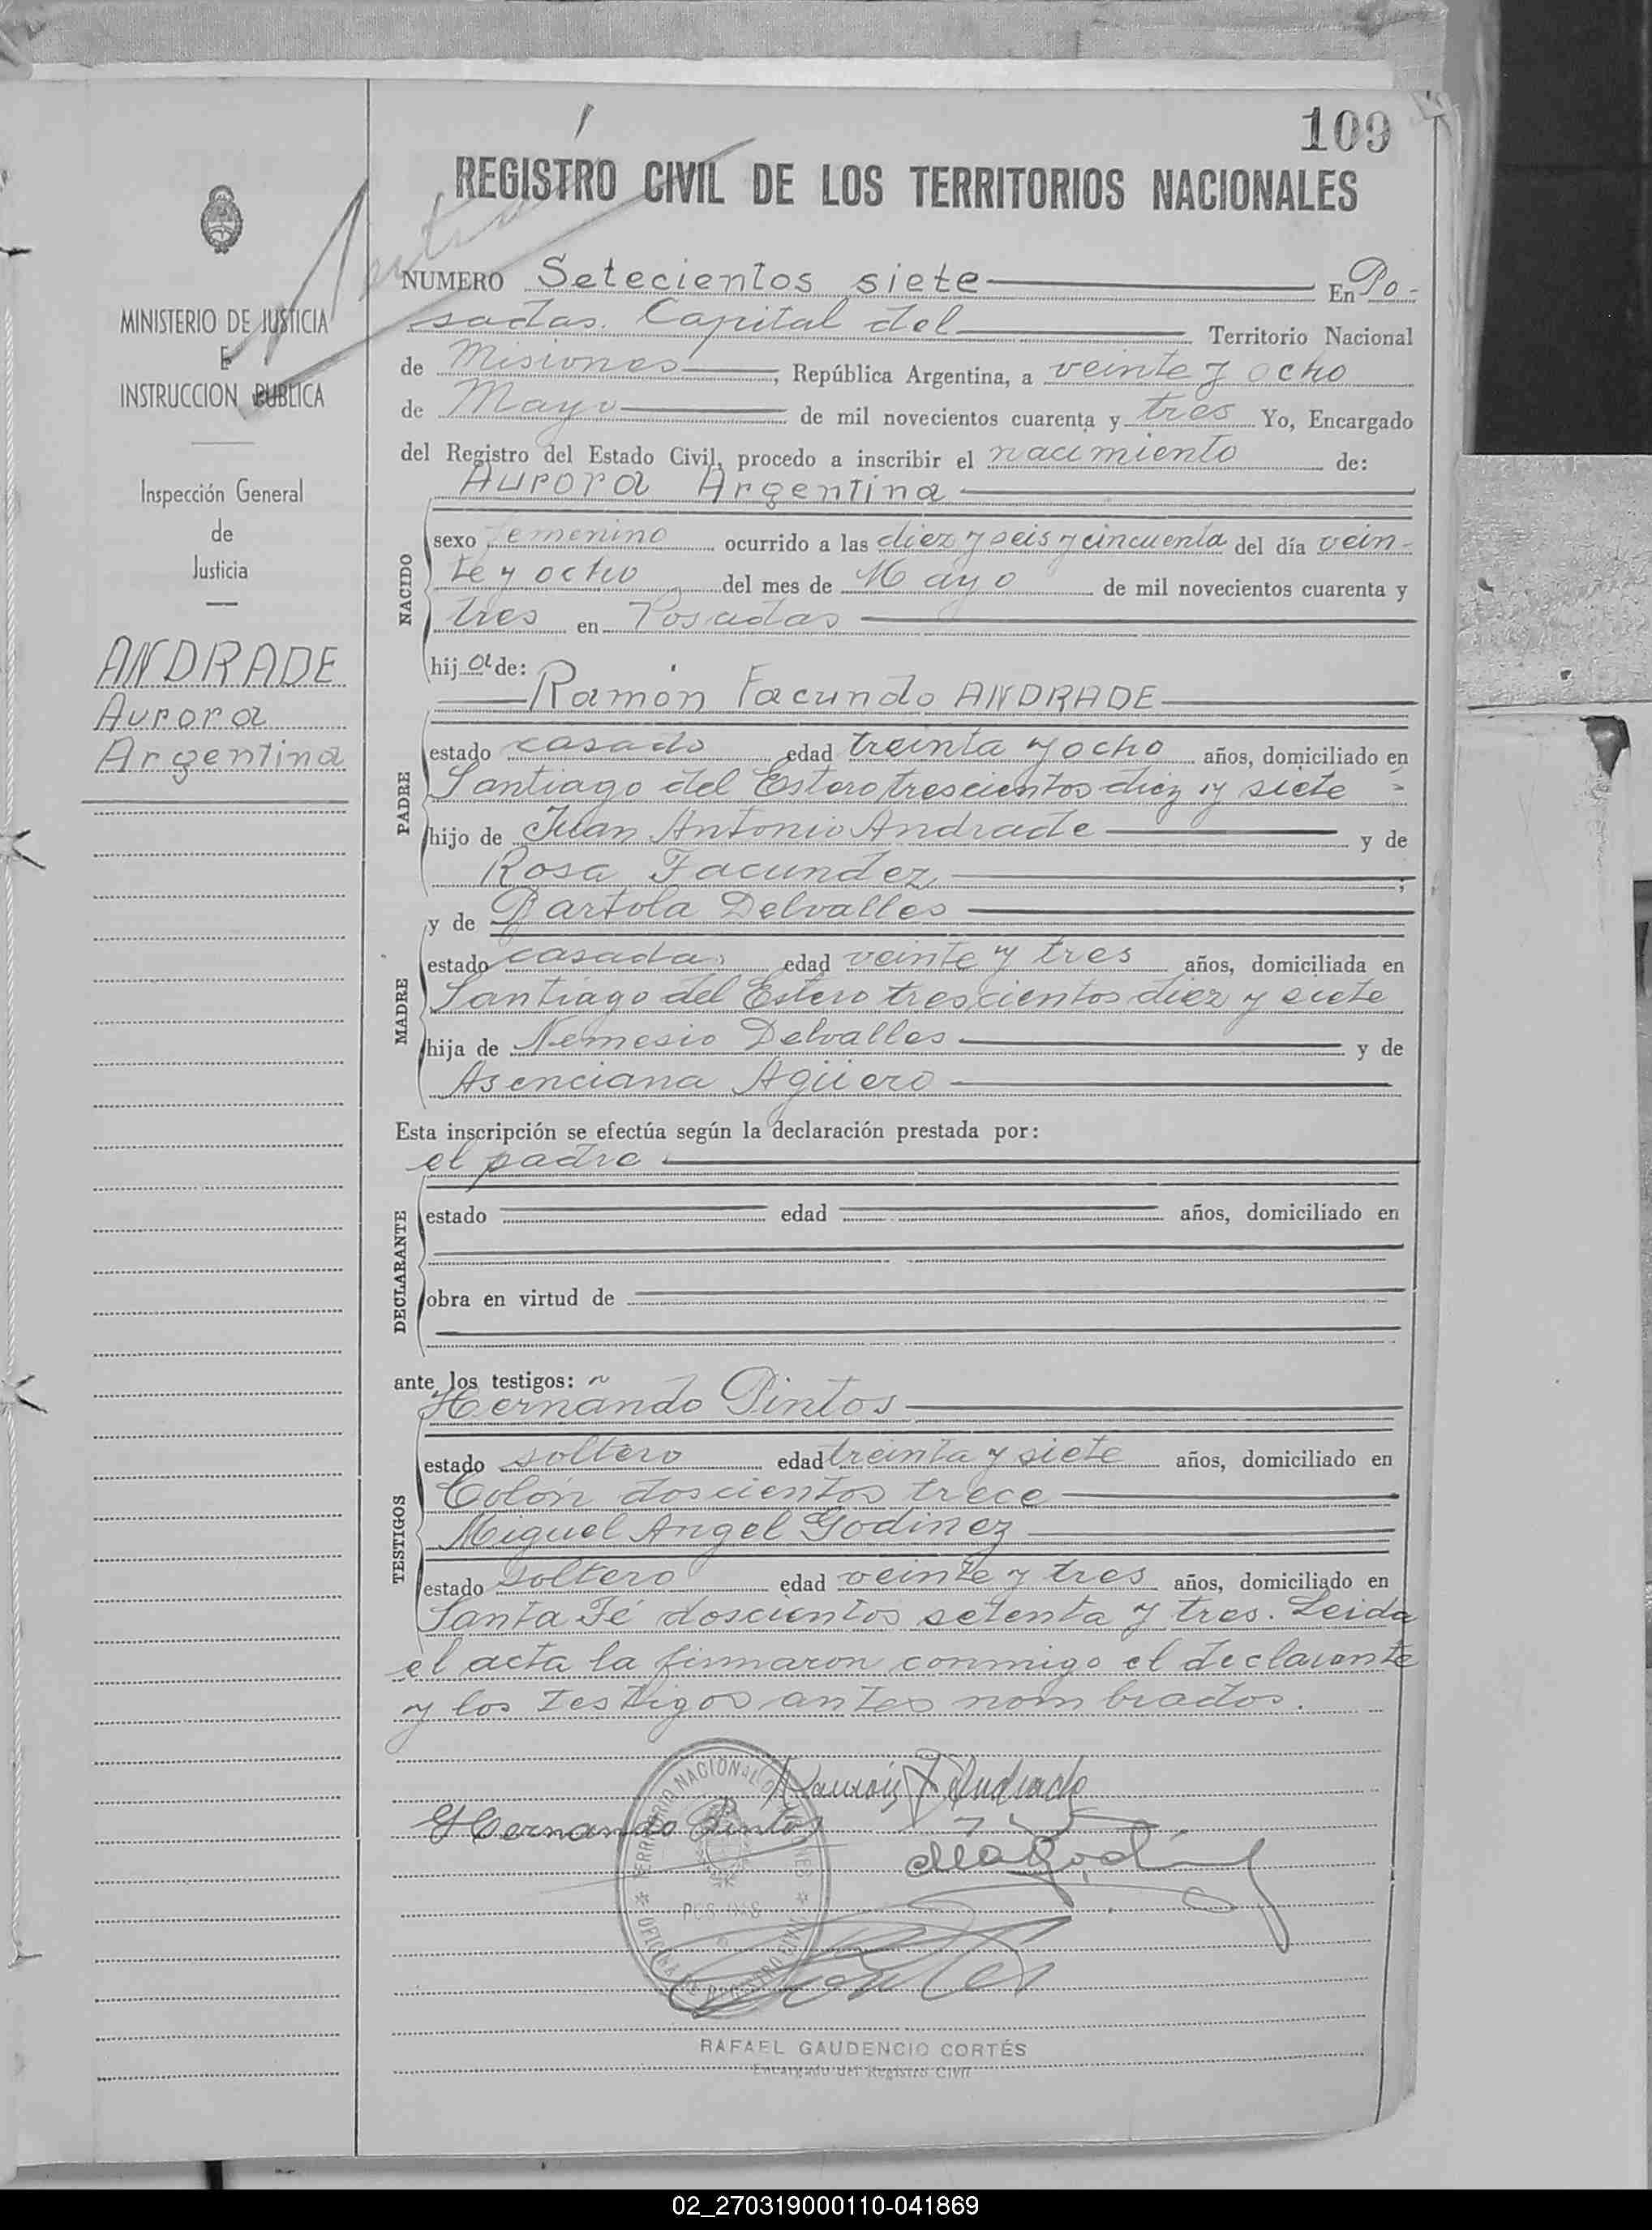 109
REGISTRO CIVIL DE LOS TERRITORIOS NACIONALES
MINISTERIO DE JUSTICIA
E
INSTRUCCION PUBLICA
Inspección General
de
Justicia
ANDRADE
Aurora
Argentina
NUMERO Setecientos siete En Po-
sadas. Capital del Territorio Nacional
de Misiones, República Argentina, a veinte y ocho
de Mayo de mil novecientos cuarenta y tres Yo, Encargado
del Registro del Estado Civil, procedo a inscribir el nacimiento de:
Aurora Argentina
NACIDO
sexo femenino ocurrido a las diez y seis y cincuenta del día vein-
te y ocho del mes de Mayo de mil novecientos cuarenta y
tres en Posadas
hija de:
Ramón Facundo ANDRADE
PADRE
estado casado edad treinta y ocho años, domiciliado en
Santiago del Estero trescientos diez y siete
hijo de Juan Antonio Andrade y de
Rosa Facundez;
y de Bartola Delvalles
MADRE
estado casada edad veinte y tres años, domiciliada en
Santiago del Estero trescientos diez y siete
hija de Nemesio Delvalles y de
Asenciana Agüero
Esta inscripción se efectúa según la declaración prestada por:
el padre
DECLARANTE
estado edad años, domiciliado en
obra en virtud de
ante los testigos:
Hernando Pintos
TESTIGOS
estado soltero edad treinta y siete años, domiciliado en
Colón doscientos trece
Miguel Angel Godinez
estado soltero edad veinte y tres años, domiciliado en
Santa Fé doscientos setenta y tres. Leida
el acta la firmaron conmigo el declarante
y los testigos antes nombrados.
Ramón F Andrade
Hernando Pintos
TERRITORIO NACIONAL DE MISIONES
POSADAS
OFICINA DE REGISTRO CIVIL
RAFAEL GAUDENCIO CORTÉS
Encargado del Registro Civil
02_270319000110-041869